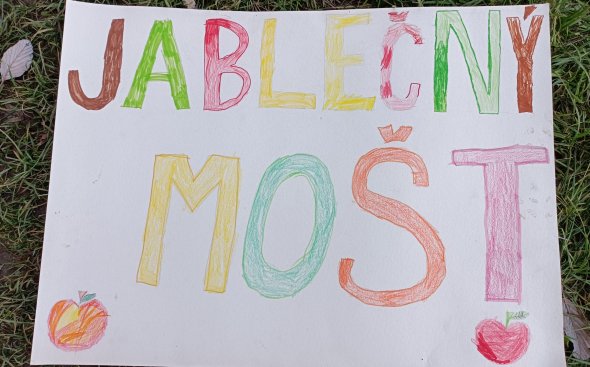 JABLEČNÝ
MOŠT